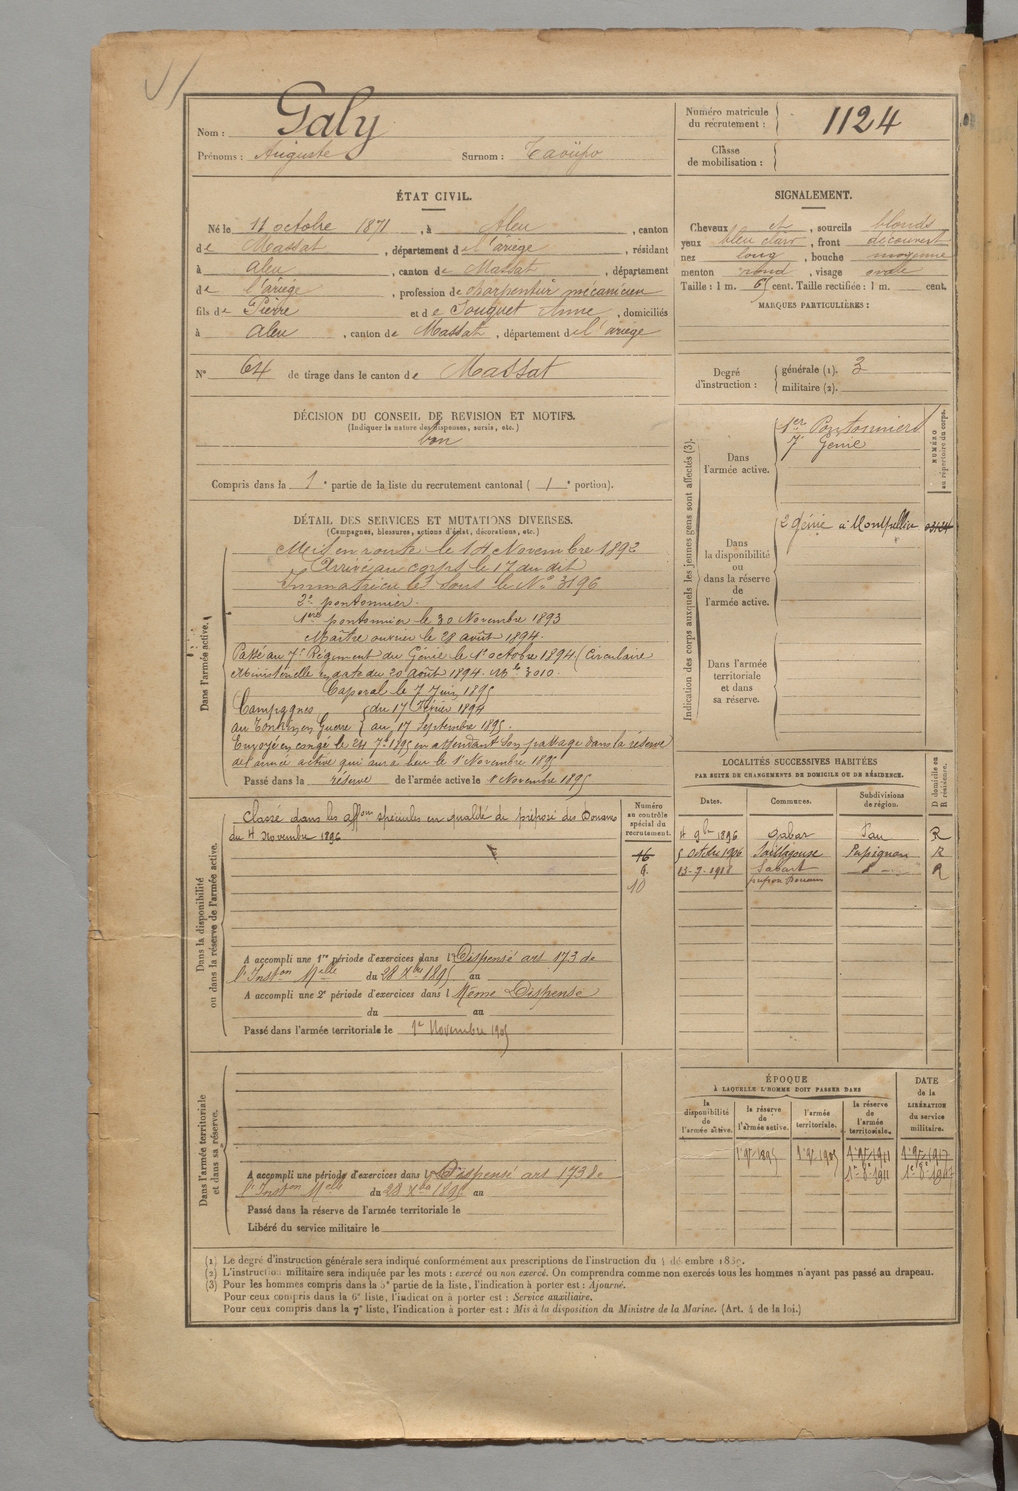 Nom : Galy
Prénoms : Auguste Surnom : Taoüpo
Numéro matricule du recrutement : 1124
Classe de mobilisation :
ÉTAT CIVIL.
Né le 11 octobre 1871, à Aleu, canton
de Massat, département de l'ariège, résidant
à aleu, canton de Massat, département
de l'ariège, profession de charpentier mécanicien
fils de Pierre et de Souquet Anne, domiciliés
à aleu, canton de Massat, département de l'ariège
N° 64 de tirage dans le canton de Massat
SIGNALEMENT.
Cheveux et, sourcils blonds
yeux bleu clair, front découvert
nez long, bouche moyenne
menton rond, visage ovale
Taille : 1 m. 65 cent. Taille rectifiée : 1 m. cent.
MARQUES PARTICULIÈRES :
Degré d'instruction : générale (1). 3
militaire (2).
DÉCISION DU CONSEIL DE REVISION ET MOTIFS.
(Indiquer la nature des dispenses, sursis, etc.)
bon
Compris dans la 1e partie de la liste du recrutement cantonal ( 1e portion).
DÉTAIL DES SERVICES ET MUTATIONS DIVERSES.
(Campagnes, blessures, actions d'éclat, décorations, etc.)
Dans l'armée active.
Mis en route le 14 Novembre 1892
Arrivé au corps le 17 du dit
Immatriculé sous le No 3196
2e pontonnier.
1ere pontonnier le 30 Novembre 1893
Maître ouvrier le 28 août 1894.
Passé au 7e Régiment du Génie le 1er octobre 1894 (Circulaire
Ministérielle en date du 20 août 1894. 3010.
Caporal le 7 Juin 1895
Campagnes du 17 Février 1894
au Tonkin en Guerre au 17 Septembre 1895.
Envoyé en congé le 24 7bre 1895 en attendant son passage dans la réserve
de l'armée active qui aura lieu le 1er Novembre 1895
Passé dans la réserve de l'armée active le 1 Novembre 1895
Indication des corps auxquels les jeunes gens sont affectés (3).
NUMÉRO au répertoire du corps.
Dans l'armée active.
1er Pontonniers
7e Génie
Dans la disponibilité ou dans la réserve de l'armée active.
2 génie à Montpellier
Dans l'armée territoriale et dans sa réserve.
Dans la disponibilité ou dans la réserve de l'armée active.
Classé dans les affons spéciales en qualité de préposé des Douanes
du 4 Novembre 1896
Numéro au contrôle spécial du recrutement.
16
6
10
A accompli une 1re période d'exercices dans l' Dispensé art 173 de
l'Inston Melle du 28 Xbre 1895 au
A accompli une 2e période d'exercices dans l Même Dispense
du au
Passé dans l'armée territoriale le 1er Novembre 1905
LOCALITÉS SUCCESSIVES HABITÉES
PAR SUITE DE CHANGEMENTS DE DOMICILE OU DE RÉSIDENCE.
Dates. Communes. Subdivisions de région. D domicile ou R résidence.
4 9bre 1896 Gabar Pau R
5 octobre 1906 Saillagouse Perpignan R
13-7-1918 R
Dans l'armée territoriale et dans sa réserve.
A accompli une période d'exercices dans l' Dispensé art 173 de
l'Inston Melle du 28 Xbre 1895 au
Passé dans la réserve de l'armée territoriale le
Libéré du service militaire le
ÉPOQUE
À LAQUELLE L'HOMME DOIT PASSER DANS
la disponibilité de l'armée active. la réserve de l'armée active. l'armée territoriale. la réserve de l'armée territoriale.
DATE de la LIBÉRATION du service militaire.
1er 9bre 1895 1er 9bre 1905 1er 9bre 1911 1er 9bre 1917
(1) Le degré d'instruction générale sera indiqué conformément aux prescriptions de l'instruction du
(2) L'instruction militaire sera indiquée par les mots : exercé ou non exercé. On comprendra comme non exercés tous les hommes n'ayant pas passé au drapeau.
(3) Pour les hommes compris dans la 5e partie de la liste, l'indication à porter est : Ajourné.
Pour ceux compris dans la 6e liste, l'indication à porter est : Service auxiliaire.
Pour ceux compris dans la 7e liste, l'indication à porter est : Mis à la disposition du Ministre de la Marine. (Art. 4 de la loi.)